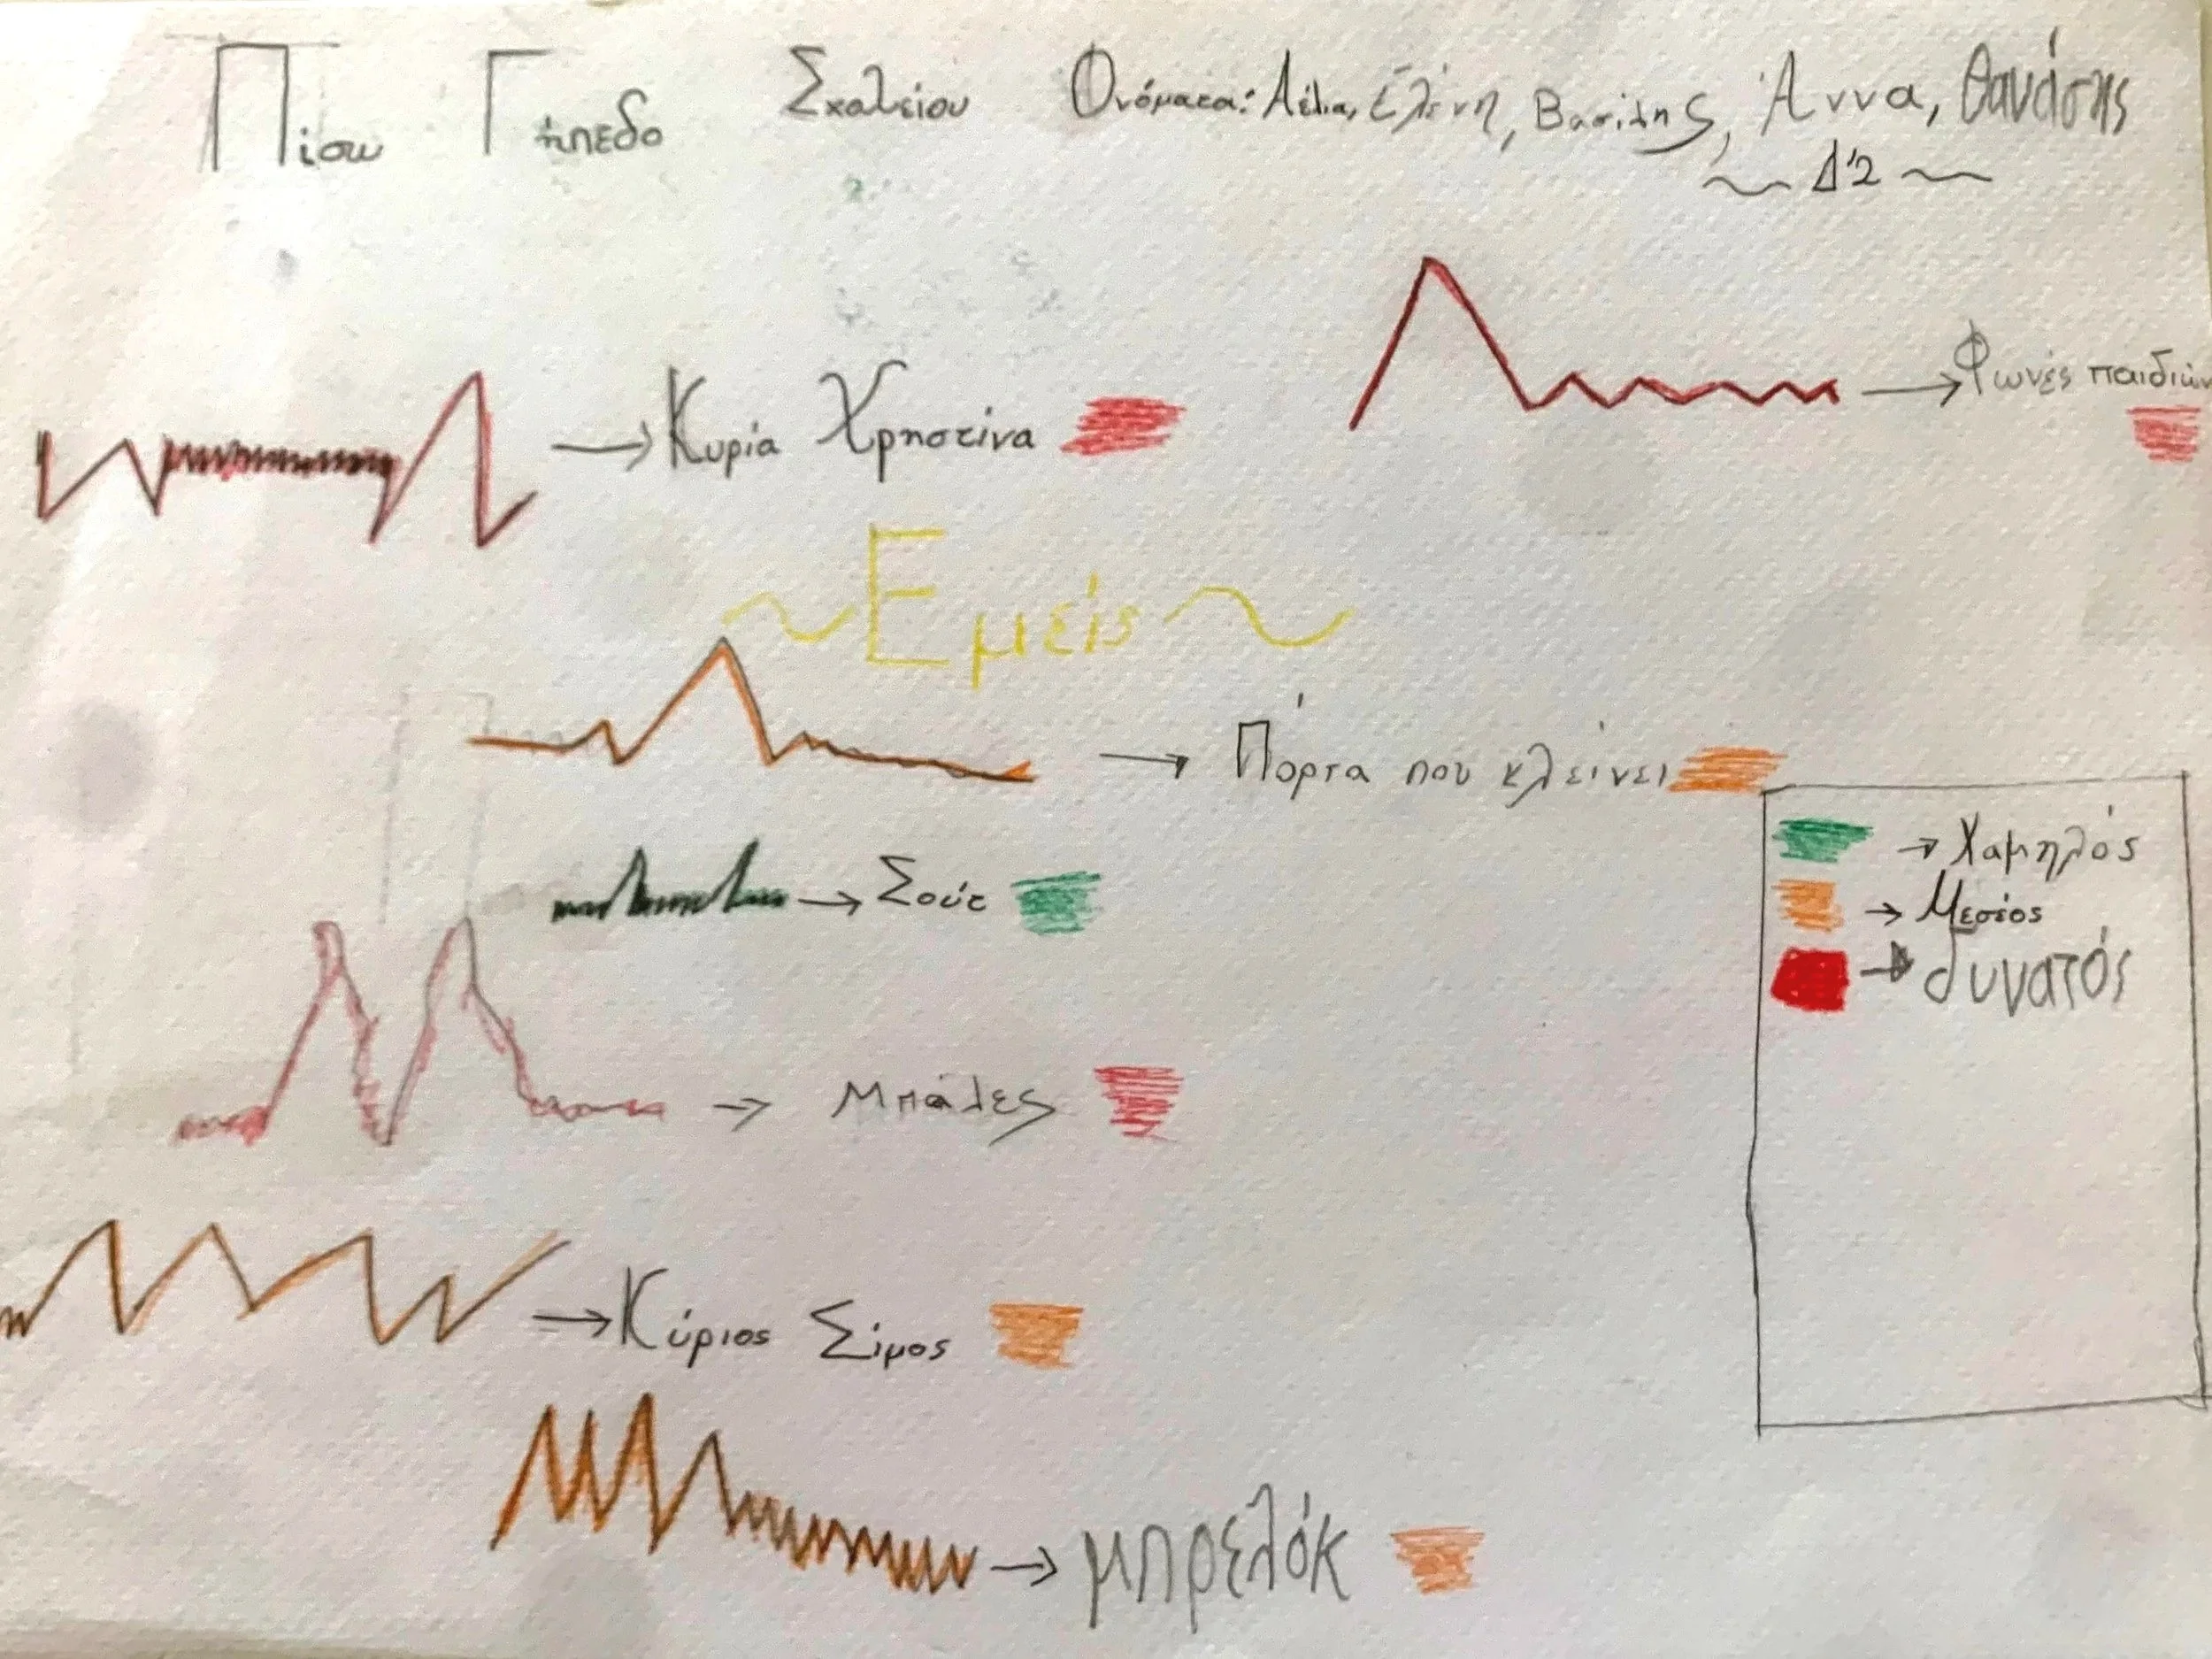 Πίσω Γήπεδο Σχολείου Ονόματα: Λέλια, Ελένη, Βασίλης, Άννα, Θανάσης
Δ'2
→ Φωνές παιδιών
→ Κυρία Χρηστίνα
~ Εμείς ~
→ Πόρτα που κλείνει
→ Χαμηλός
→ Μεσέος
→ δυνατός
→ Σούτ
→ Μπάλες
→ Κύριος Σίμος
→ μπρελόκ